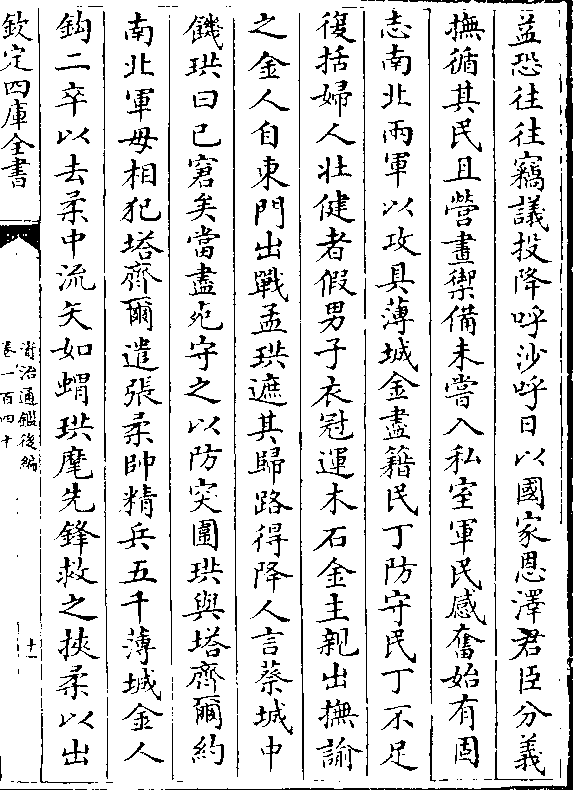 益恐往往竊議投降呼沙呼日以國家恩澤君臣分義
撫循其民且營畫禦備未嘗入私室軍民感奮始有固
志南北兩軍以攻具薄城金盡籍民丁防守民丁不足
復括婦人壯健者假男子衣冠運木石金主親出撫諭
之金人自東門出戰孟珙遮其歸路得降人言蔡城中
饑珙曰已窘矣當盡死守之以防突圍珙與塔齊爾約
南北軍毋相犯塔齊爾遣張柔帥精兵五千薄城金人
鈎二卒以去柔中流矢如蝟珙麾先鋒救之挾柔以出
欽定四庫全書
資治通鑑後編
卷一百四十
十一